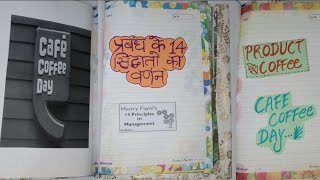 Café
Coffee
Day
प्रबंध के 14
सिद्धांतों का
वर्णन
Henry Fayol's
14 Principles
of
Management
PRODUCT
Coffee
CAFE
COFFEE
DAY...